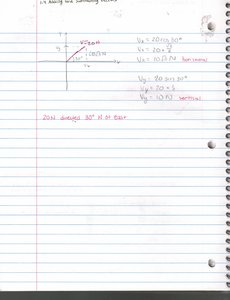 1.4 Adding and Subtracting Vectors
V=20N
30°
Vx = 20cos30°
Vx = 20 x
Vx = 10√3 N horizontal
Vy = 20 sin 30°
Vy = 20 x .5
Vy = 10 N vertical
20N directed 30° N of East